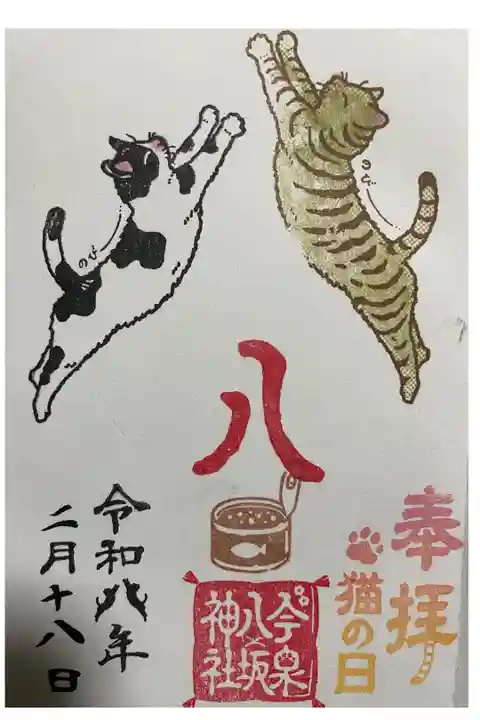 奉拝
猫の日
八
今泉
八坂
神社
のび〜
のび
令和八年
二月十八日